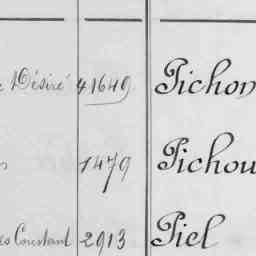 Désiré 41649 Pichon
1479 Pichou
Constant 2913 Piel